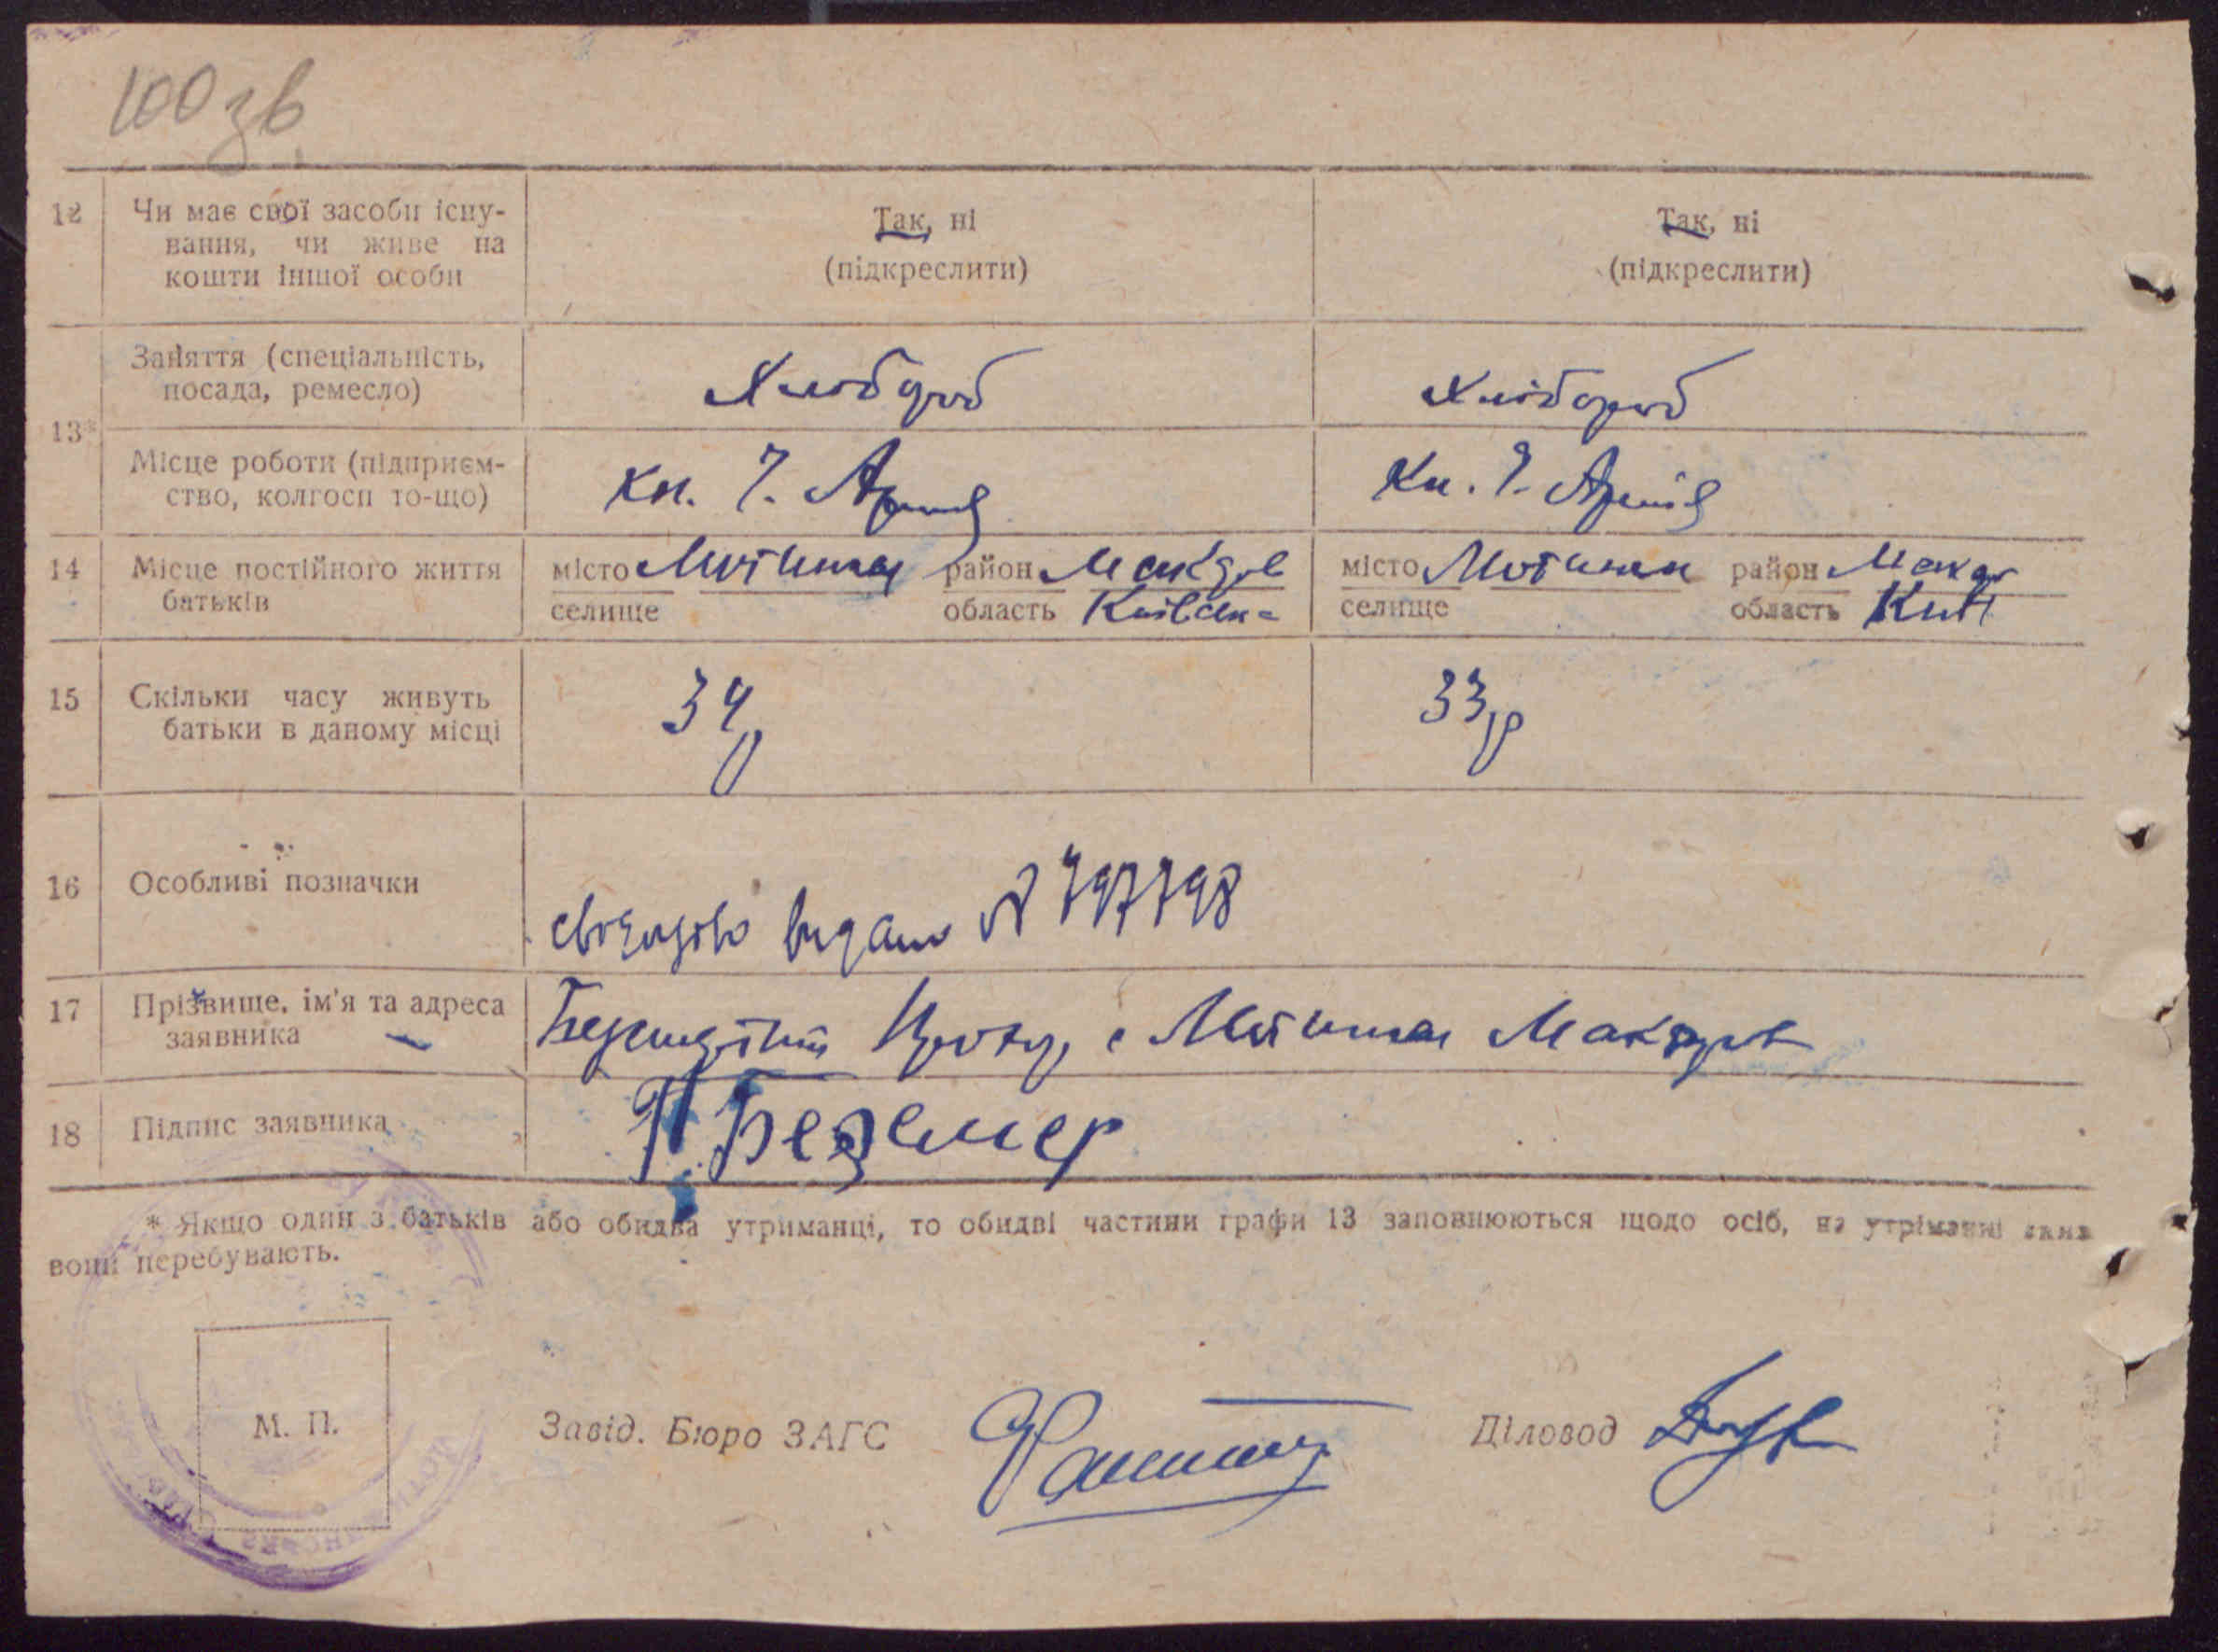 100 зв
12 Чи має свої засоби існу-
вання, чи живе на
кошти іншої особи
Так, ні
(підкреслити)
Так, ні
(підкреслити)
13*
Заняття (спеціальність,
посада, ремесло)
Хлібороб
Хлібороб
Місце роботи (підприєм-
ство, колгосп то-що)
Кл. Ч. Армія
Кл. Ч. Армія
14 Місце постійного життя
батьків
місто Мотижин район Макарів
селище область Київська
місто Мотижин район Макар
селище область Київ
15 Скільки часу живуть
батьки в даному місці
34 р
33 р
16 Особливі позначки
свідоцтво видано № 797798
17 Прізвище, ім'я та адреса
заявника
с Мотижин Макарів
18 Підпис заявника
П Безсмер
* Якщо один з батьків або обидва утриманці, то обидві частини графи 13 заповнюються щодо осіб, на утриманні яких
вони перебувають.
М. П.
Завід. Бюро ЗАГС
Діловод